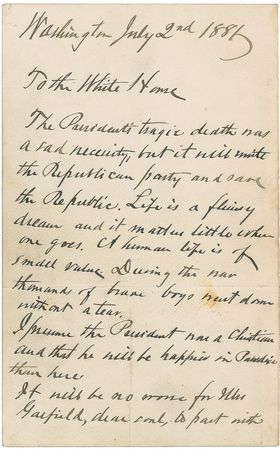 Washington July 2nd 1881
To the White House
The President's tragic death was
a sad necessity, but it will unite
the Republican party and save
the Republic. Life is a flimsy
dream and it matters little when
one goes. A human life is of
small value. During the war
thousands of brave boys went down
without a tear.
I presume the President was a Christian
and that he will be happier in Paradise
than here
It will be no worse for Mrs
Garfield, dear soul, to part with